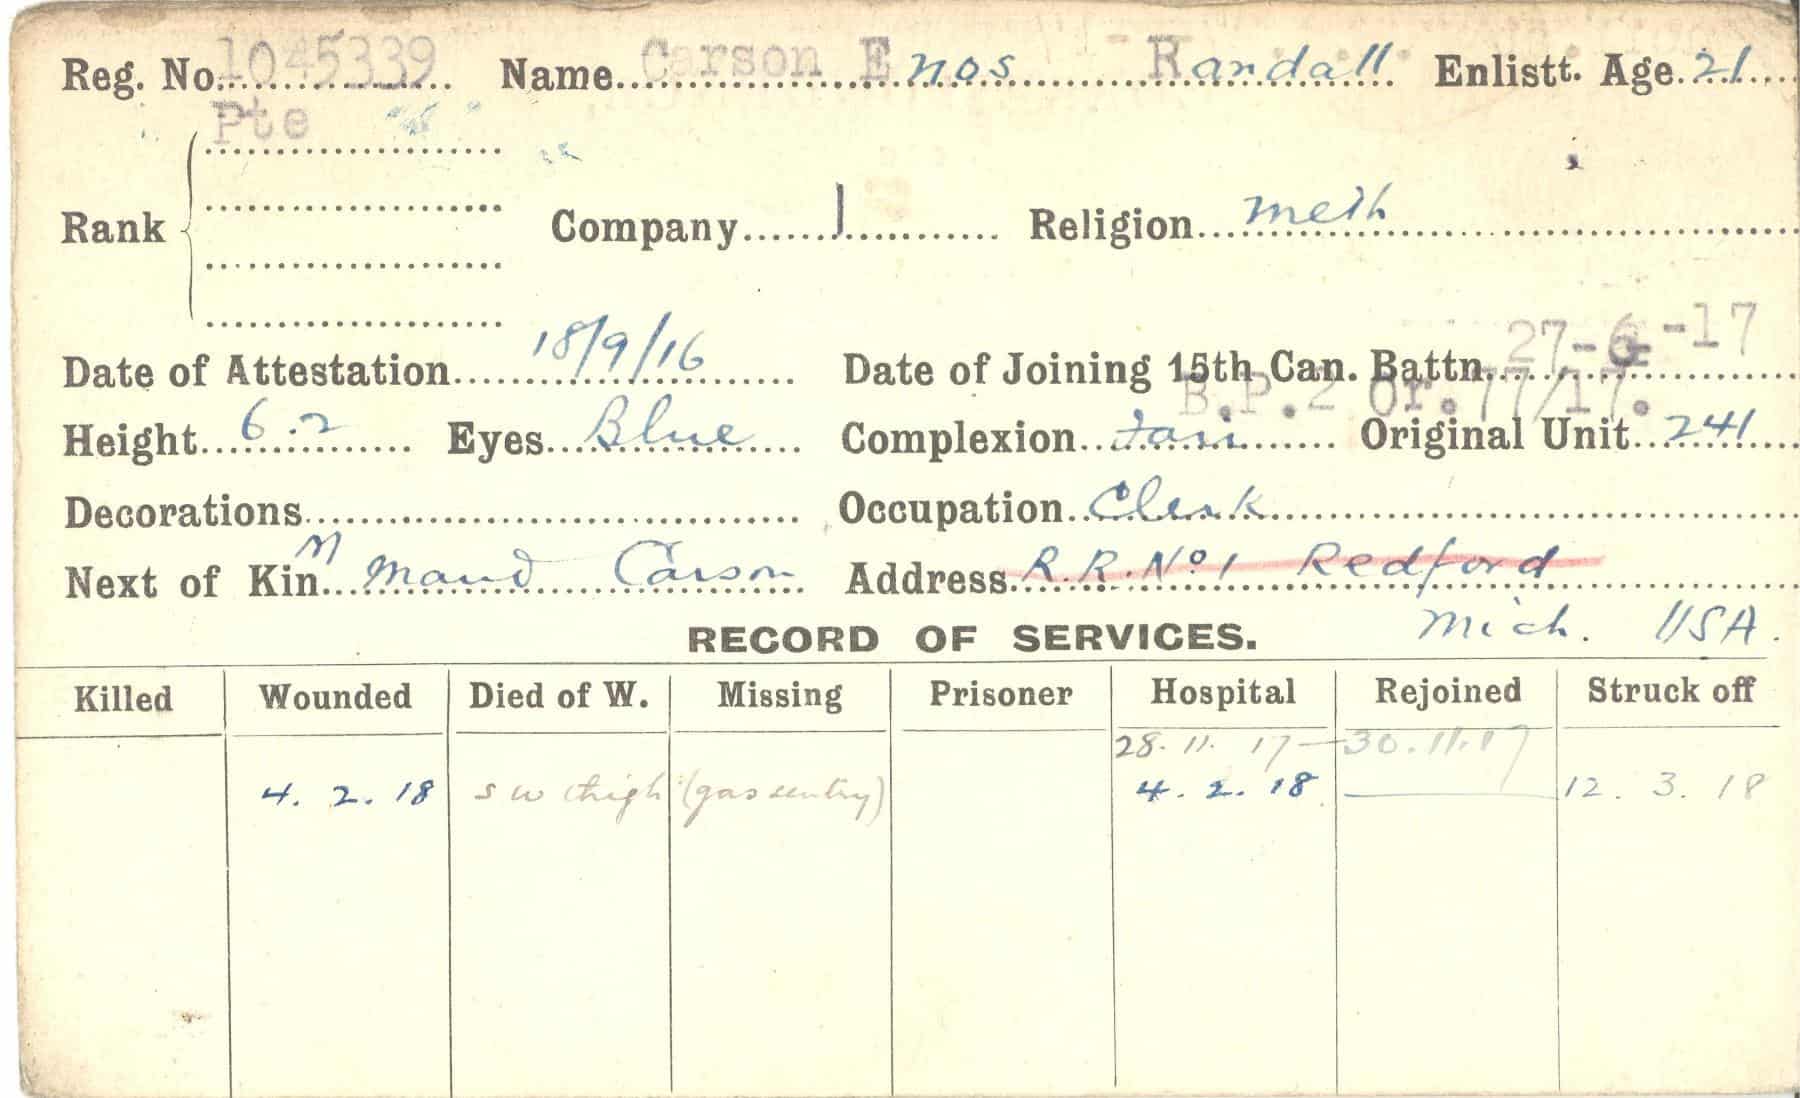 Reg. No. 1045339 Name Carson Enos Randall Enlistt. Age. 21
Pte
Rank Company 1 Religion Meth
27-6-17
Date of Attestation 18/9/16 Date of Joining 15th Can. Battn.
B.P.2 Or.77/17.
Height 6.2 Eyes Blue Complexion Fair Original Unit 241
Decorations Occupation Clerk
Next of Kin M Maud Carson Address R.R. No 1 Redford
Mich. USA.
RECORD OF SERVICES.
Killed Wounded Died of W. Missing Prisoner Hospital Rejoined Struck off
28.11.17 — 30.11.17
4.2.18 s w thigh (gas sentry) 4.2.18 12.3.18